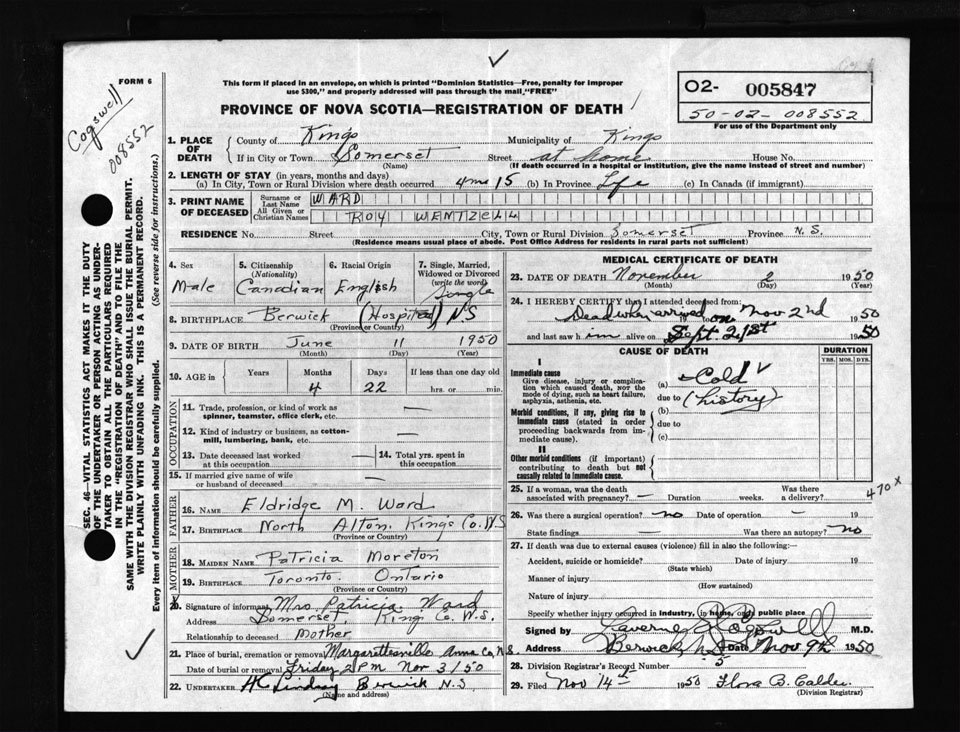 FORM 6
Cogswell
008552
This form if placed in an envelope, on which is printed "Dominion Statistics—Free, penalty for improper
use $300," and properly addressed will pass through the mail "FREE"
PROVINCE OF NOVA SCOTIA—REGISTRATION OF DEATH
02- 005847
50-02-008552
For use of the Department only
SEC. 46—VITAL STATISTICS ACT MAKES IT THE DUTY
OF THE UNDERTAKER OR PERSON ACTING AS UNDER-
TAKER TO OBTAIN ALL THE PARTICULARS REQUIRED
IN THE "REGISTRATION OF DEATH" AND TO FILE THE
SAME WITH THE DIVISION REGISTRAR WHO SHALL ISSUE THE BURIAL PERMIT.
WRITE PLAINLY WITH UNFADING INK. THIS IS A PERMANENT RECORD.
Every item of information should be carefully supplied. (See reverse side for instructions.)
1. PLACE OF DEATH
County of Kings Municipality of Kings
If in City or Town Somerset Street at home House No.
(Name) (If death occurred in a hospital or institution, give the name instead of street and number)
2. LENGTH OF STAY (in years, months and days)
(a) In City, Town or Rural Division where death occurred 4 mo 15 (b) In Province Life (c) In Canada (if immigrant)
3. PRINT NAME OF DECEASED
Surname or Last Name WARD
All Given or Christian Names ROY WENTZELL
RESIDENCE No. Street City, Town or Rural Division Somerset Province N.S.
(Residence means usual place of abode. Post Office Address for residents in rural parts not sufficient)
4. Sex Male
5. Citizenship (Nationality) Canadian
6. Racial Origin English
7. Single, Married, Widowed or Divorced (write the word) Single
8. BIRTHPLACE Berwick (Hospital) NS
(Province or Country)
9. DATE OF BIRTH June 11 1950
(Month) (Day) (Year)
10. AGE in Years Months 4 Days 22 If less than one day old hrs. or min.
OCCUPATION
11. Trade, profession, or kind of work as spinner, teamster, office clerk, etc. —
12. Kind of industry or business, as cotton-mill, lumbering, bank, etc. —
13. Date deceased last worked at this occupation —
14. Total yrs. spent in this occupation —
15. If married give name of wife or husband of deceased
FATHER
16. NAME Eldridge M. Ward
17. BIRTHPLACE North Alton Kings Co. N.S
(Province or Country)
MOTHER
18. MAIDEN NAME Patricia Moreton
19. BIRTHPLACE Toronto. Ontario
(Province or Country)
20. Signature of informant Mrs. Patricia Ward
Address Somerset, Kings Co. N.S.
Relationship to deceased Mother
21. Place of burial, cremation or removal Margaretsville Anna Co, N.S.
Date of burial or removal Friday 2 PM Nov 3/50
22. UNDERTAKER H C Lindsay Berwick N.S
(Name and address)
MEDICAL CERTIFICATE OF DEATH
23. DATE OF DEATH November 2 1950
(Month) (Day) (Year)
24. I HEREBY CERTIFY that I attended deceased from:
Dead when arrived to on Nov 2nd 1950
and last saw him alive on Sept. 21st 1950
CAUSE OF DEATH
DURATION
YRS. MOS. DYS.
I
Immediate cause
Give disease, injury or complication which caused death, not the mode of dying, such as heart failure, asphyxia, asthenia, etc.
(a) Cold
due to (history)
Morbid conditions, if any, giving rise to immediate cause (stated in order proceeding backwards from immediate cause).
(b)
due to
(c)
II
Other morbid conditions (if important) contributing to death but not causally related to immediate cause.
470 X
25. If a woman, was the death associated with pregnancy? — Duration weeks. Was there a delivery?
26. Was there a surgical operation? no Date of operation — 19
State findings — Was there an autopsy? no
27. If death was due to external causes (violence) fill in also the following:—
Accident, suicide or homicide? Date of injury 19
(State which)
Manner of injury
(How sustained)
Nature of injury
Specify whether injury occurred in industry, in home, or in public place
Signed by Laverne Cogswell M.D.
Address Berwick NS Date Nov 9th 1950
28. Division Registrar's Record Number 5
29. Filed Nov 14th 1950 Flora B. Calder
(Division Registrar)